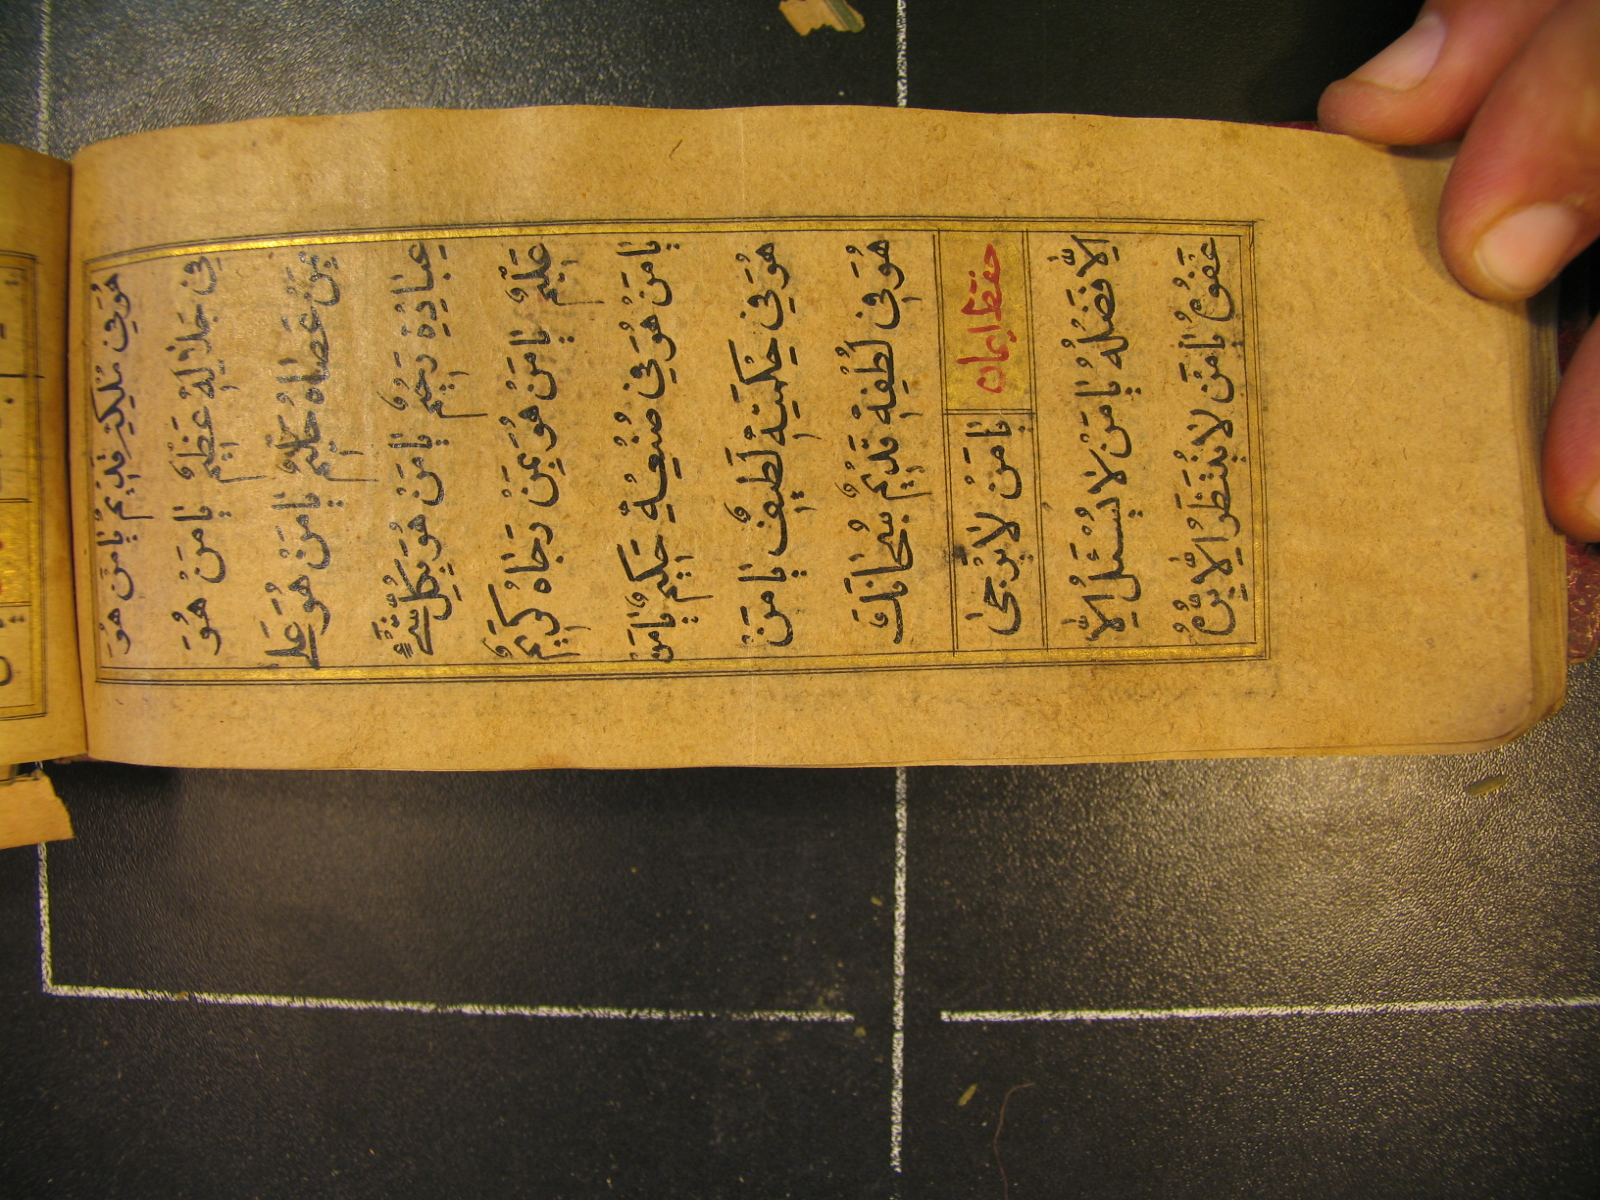 هُوَ فِي مُلْكِهِ قَدِيمٌ يَا مَنْ هُوَ
فِي جَلَالِهِ عَظِيمٌ يَا مَنْ هُوَ
بِمَنْ عَصَاهُ حَلِيمٌ يَا مَنْ هُوَ عَلَى
عِبَادِهِ رَحِيمٌ يَا مَنْ هُوَ بِكُلِّ شَيْءٍ
عَلِيمٌ يَا مَنْ هُوَ بِمَنْ رَجَاهُ كَرِيمٌ
يَا مَنْ هُوَ فِي صُنْعِهِ حَكِيمٌ يَا مَنْ
هُوَ فِي حِكْمَتِهِ لَطِيفٌ يَا مَنْ
هُوَ فِي لُطْفِهِ قَدِيمٌ سُبْحَانَكَ
حفظ ايمان يَا مَنْ لَا يُرْجَى
إِلَّا فَضْلُهُ يَا مَنْ لَا يُسْئَلُ إِلَّا
عَفْوُهُ يَا مَنْ لَا يُنْظَرُ إِلَّا بِرُّهُ